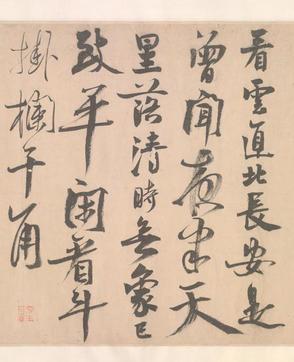 看雲直北長安是
曾聞夜半天
星落清時無象已
致平閑看斗
掛欄干角